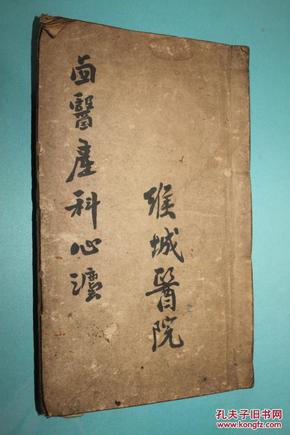 卥醫產科心灋
緱城醫院
孔夫子旧书网